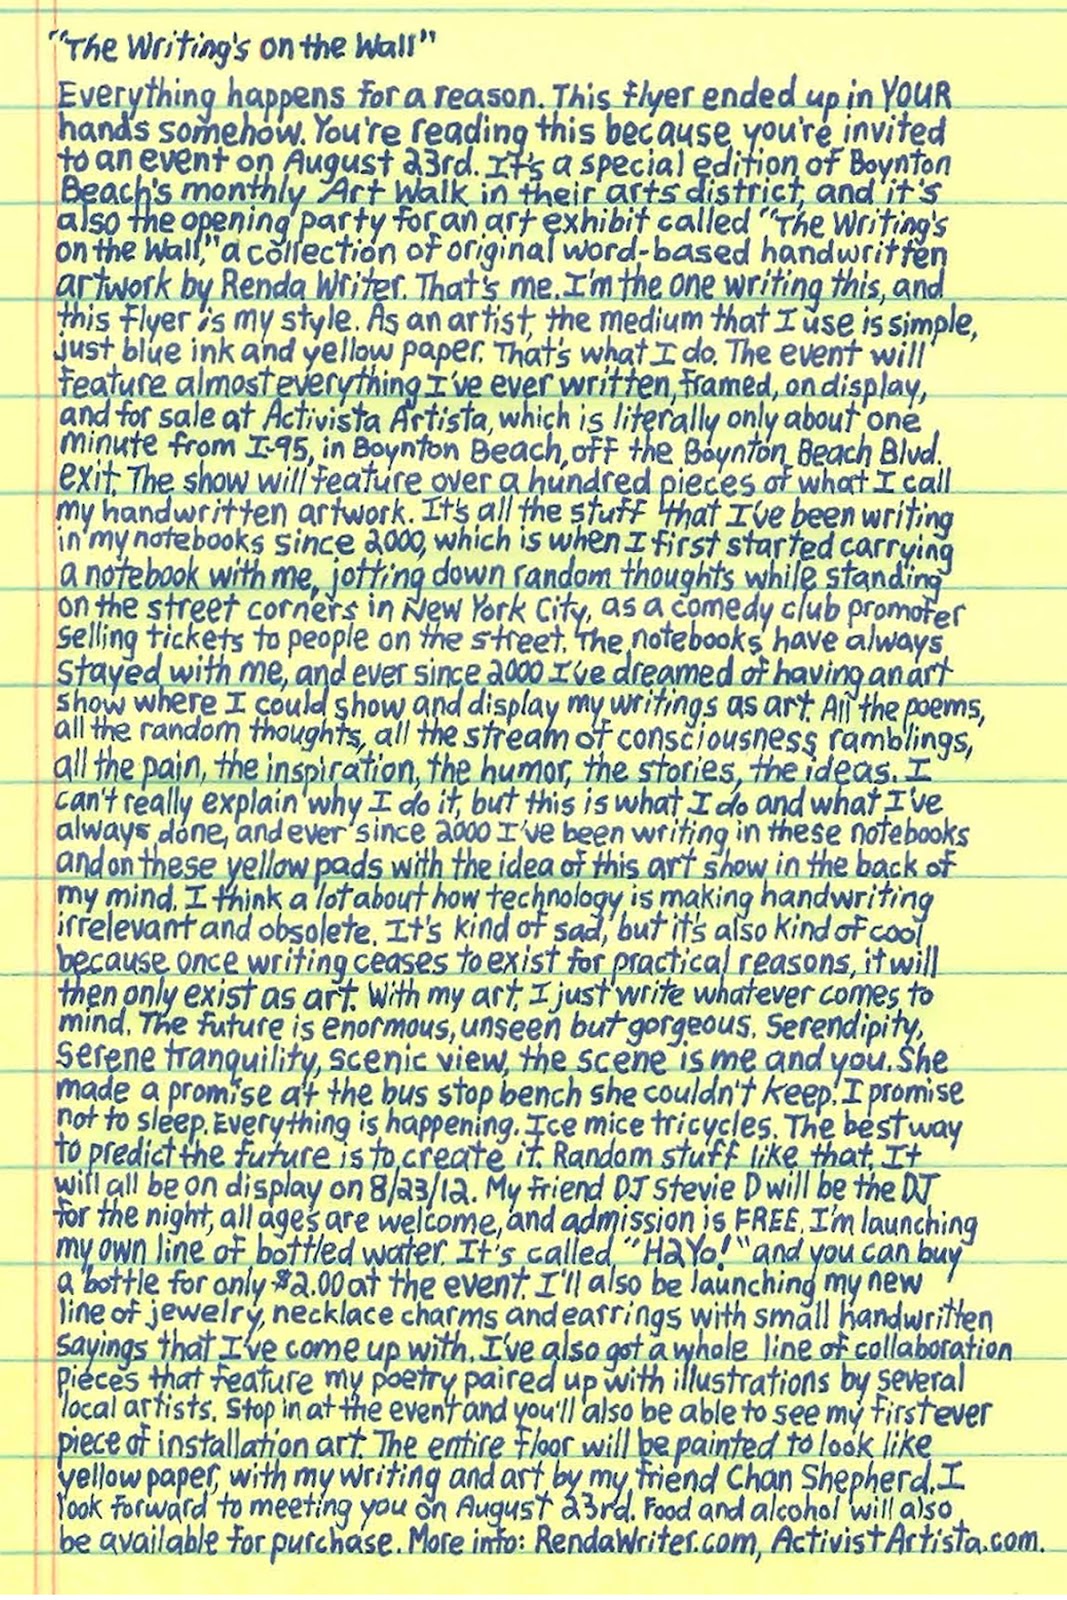 "The Writing's on the Wall"
Everything happens for a reason. This flyer ended up in YOUR
hands somehow. You're reading this because you're invited
to an event on August 23rd. It's a special edition of Boynton
Beach's monthly Art Walk in their arts district, and it's
also the opening party for an art exhibit called "The Writing's
on the Wall," a collection of original word-based handwritten
artwork by Renda Writer. That's me. I'm the one writing this, and
this flyer is my style. As an artist, the medium that I use is simple,
just blue ink and yellow paper. That's what I do. The event will
feature almost everything I've ever written, framed, on display,
and for sale at Activista Artista, which is literally only about one
minute from I-95, in Boynton Beach, off the Boynton Beach Blvd.
exit. The show will feature over a hundred pieces of what I call
my handwritten artwork. It's all the stuff that I've been writing
in my notebooks since 2000, which is when I first started carrying
a notebook with me, jotting down random thoughts while standing
on the street corners in New York City, as a comedy club promoter
selling tickets to people on the street. The notebooks have always
stayed with me, and ever since 2000 I've dreamed of having an art
show where I could show and display my writings as art. All the poems,
all the random thoughts, all the stream of consciousness ramblings,
all the pain, the inspiration, the humor, the stories, the ideas. I
can't really explain why I do it, but this is what I do and what I've
always done, and ever since 2000 I've been writing in these notebooks
and on these yellow pads with the idea of this art show in the back of
my mind. I think a lot about how technology is making handwriting
irrelevant and obsolete. It's kind of sad, but it's also kind of cool
because once writing ceases to exist for practical reasons, it will
then only exist as art. With my art, I just write whatever comes to
mind. The future is enormous, unseen but gorgeous. Serendipity,
serene tranquility, scenic view, the scene is me and you. She
made a promise at the bus stop bench she couldn't keep. I promise
not to sleep. Everything is happening. Ice mice tricycles. The best way
to predict the future is to create it. Random stuff like that. It
will all be on display on 8/23/12. My friend DJ Stevie D will be the DJ
for the night, all ages are welcome, and admission is FREE. I'm launching
my own line of bottled water. It's called "H2Yo!" and you can buy
a bottle for only $2.00 at the event. I'll also be launching my new
line of jewelry, necklace charms and earrings with small handwritten
sayings that I've come up with. I've also got a whole line of collaboration
pieces that feature my poetry paired up with illustrations by several
local artists. Stop in at the event and you'll also be able to see my first ever
piece of installation art. The entire floor will be painted to look like
yellow paper, with my writing and art by my friend Chan Shepherd. I
look forward to meeting you on August 23rd. Food and alcohol will also
be available for purchase. More info: RendaWriter.com, ActivistArtista.com.